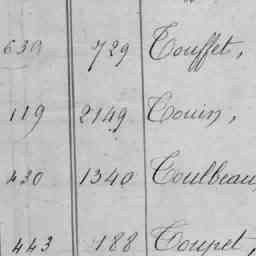 639 729 Couffet,
119 2149 Couin,
430 1340 Coulbeau
443 188 Coupet,